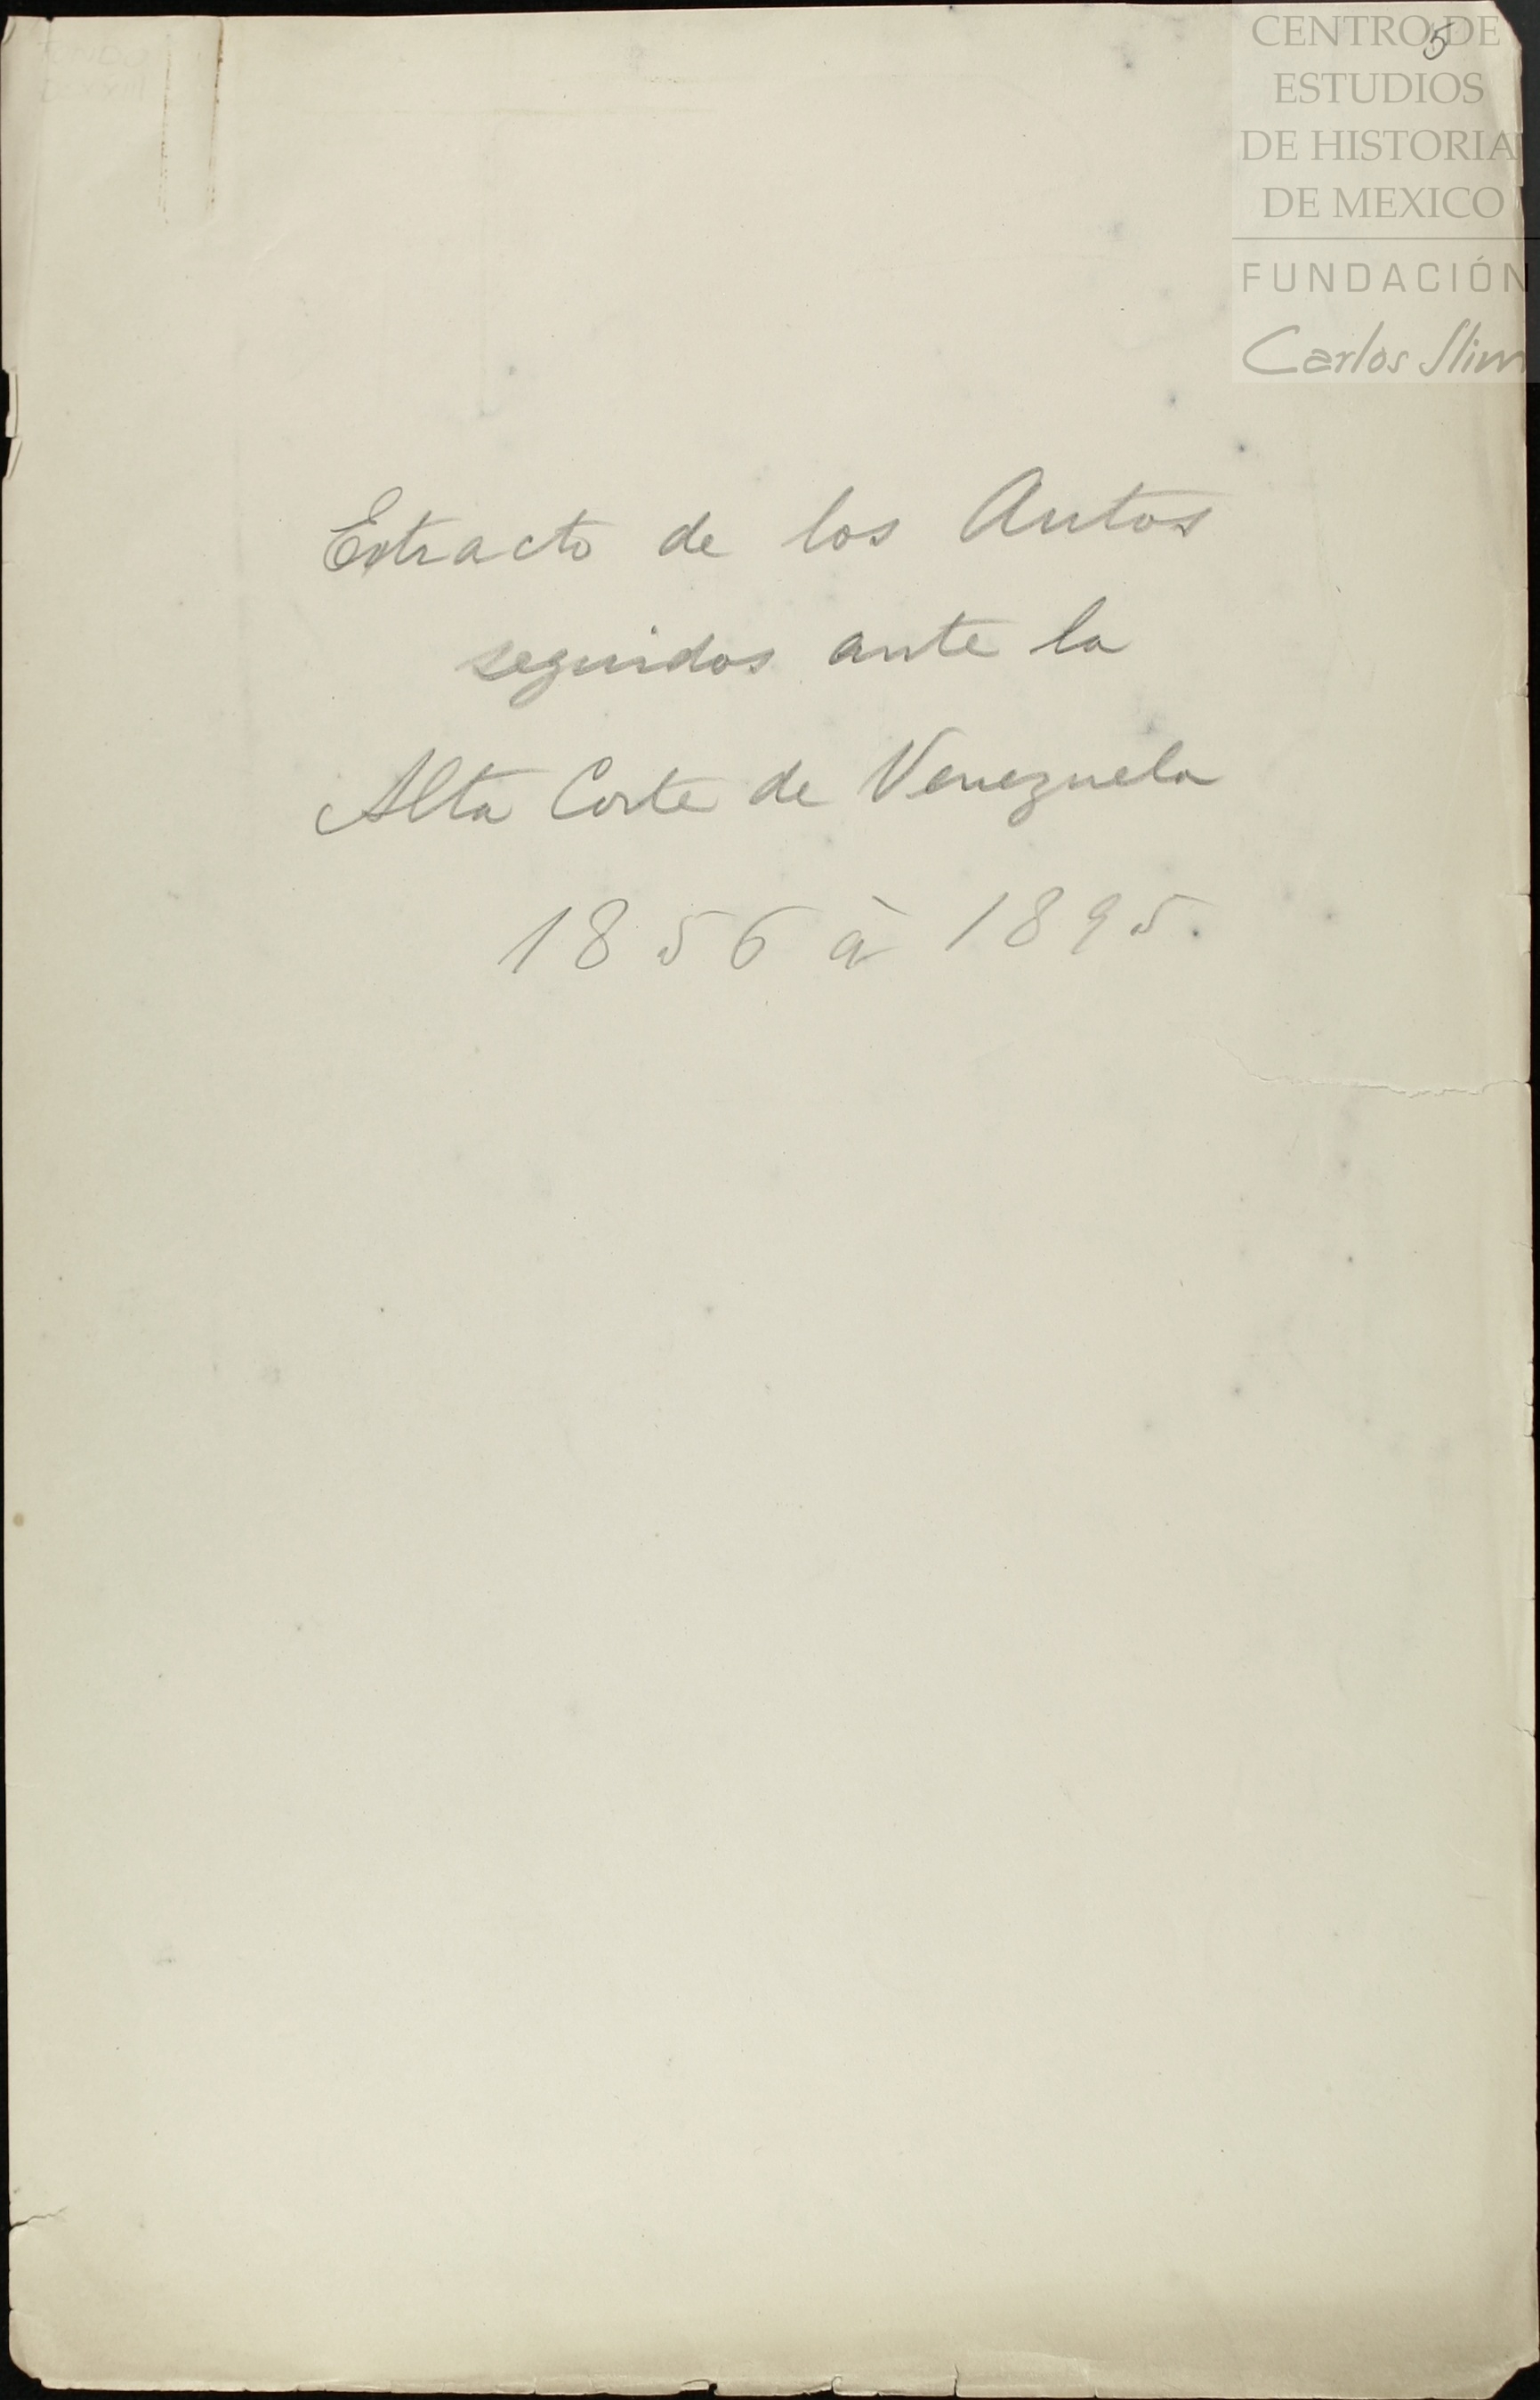 5
CENTRO DE
ESTUDIOS
DE HISTORIA
DE MEXICO
FUNDACIÓN
Carlos Slim
Extracto de los Autos
seguidos ante la
Alta Corte de Venezuela
1856 à 1895.